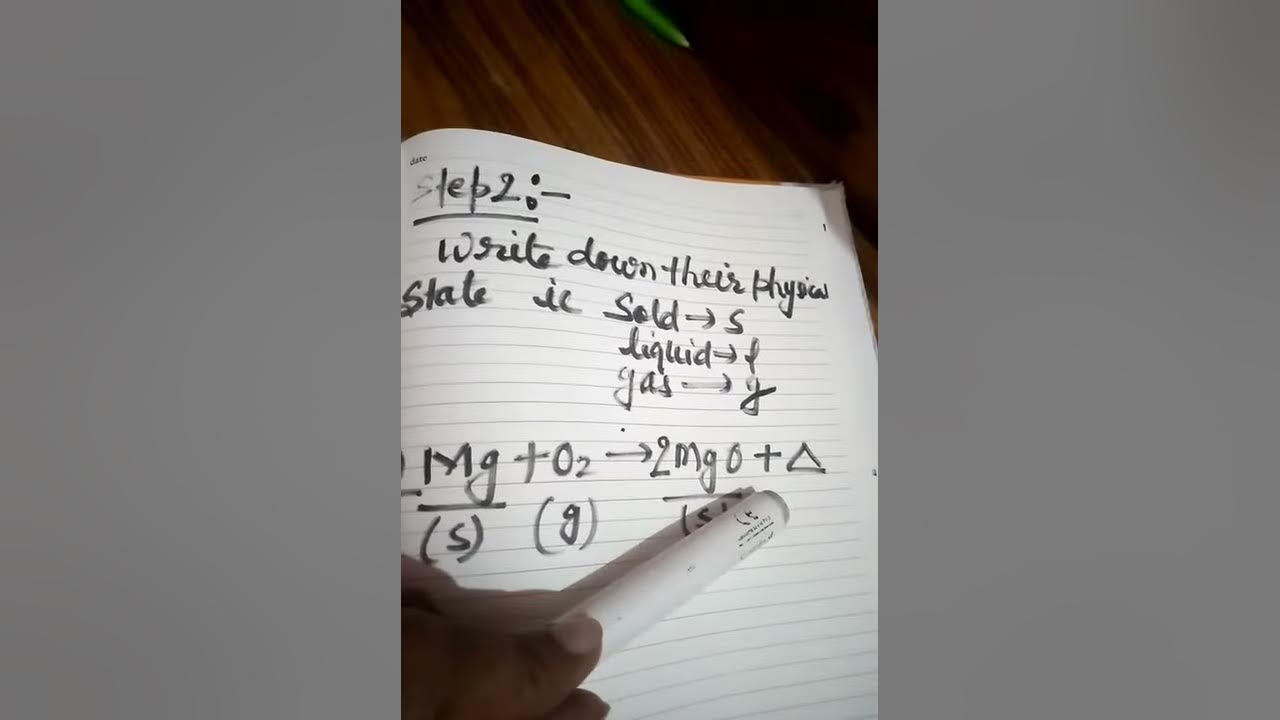 date
Step2:-
Write down their physical
state ie Sold→s
liquid→l
gas→g
Mg+O₂→2MgO+Δ
(s) (g) (s)